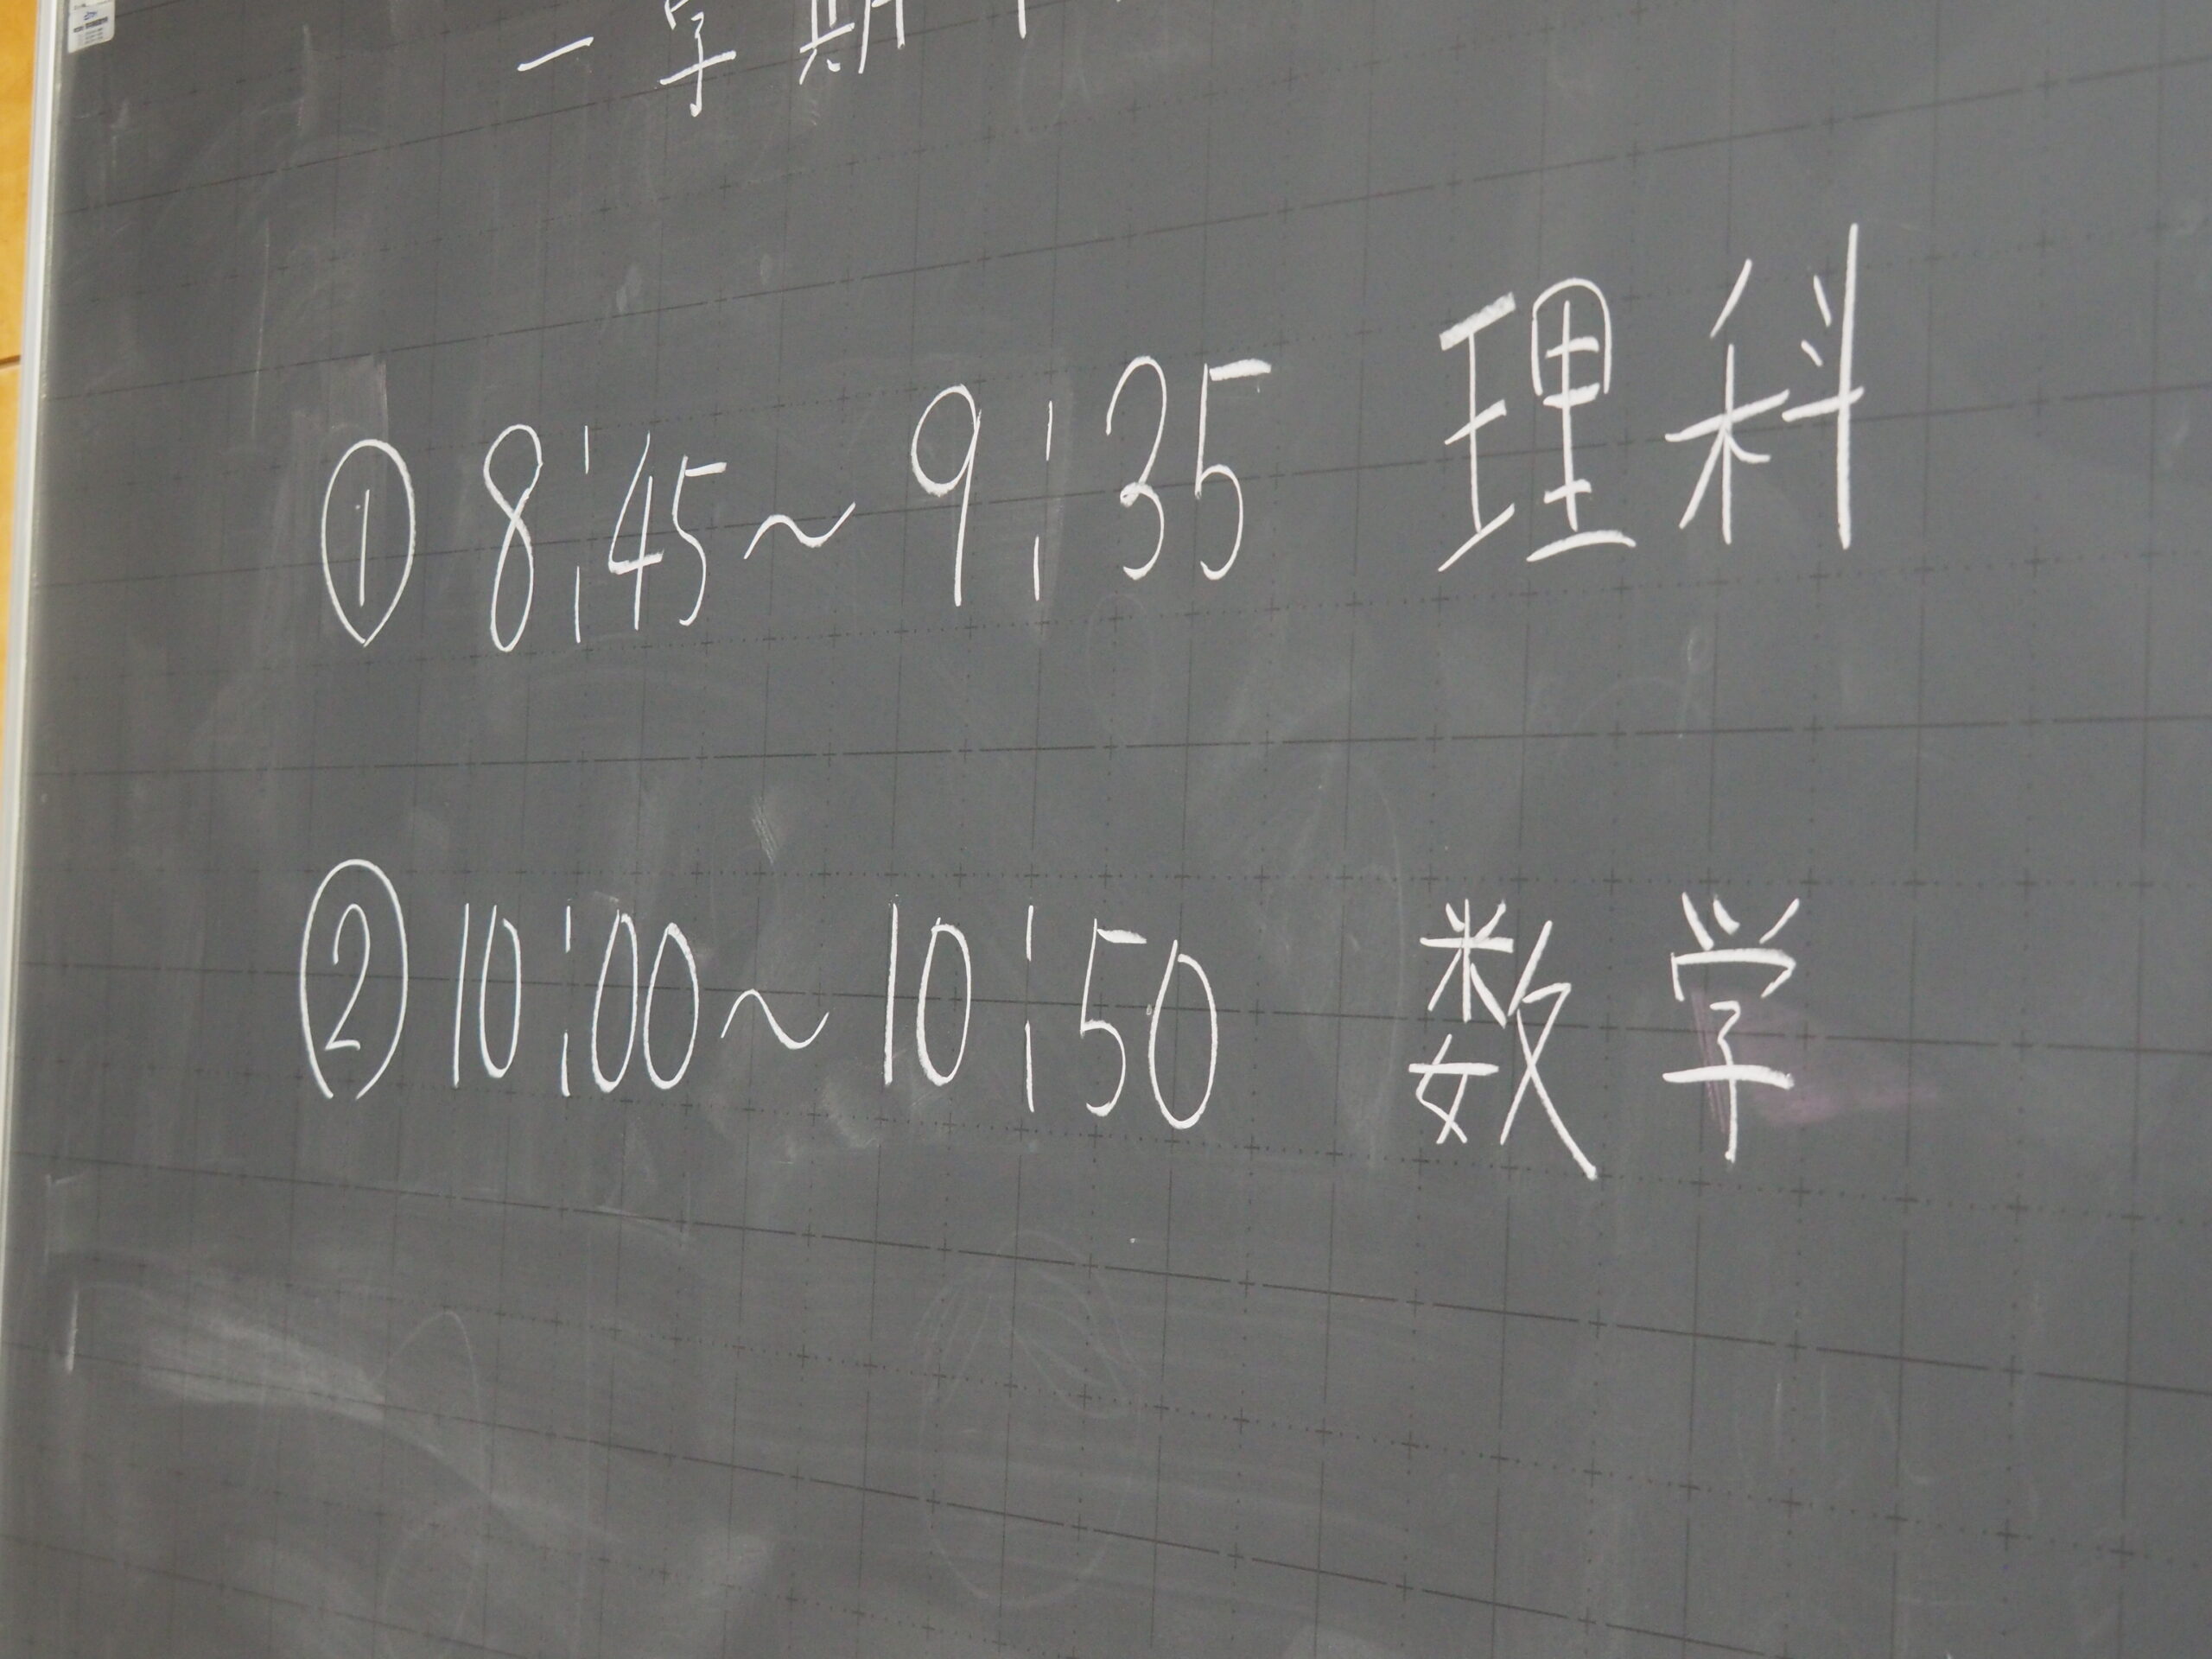 一学期
① 8:45~9:35 理科
② 10:00~10:50 数学